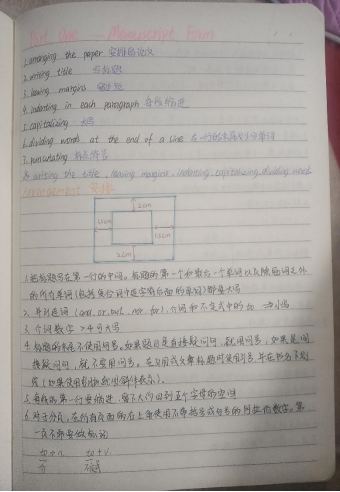 Part One Manuscript Form
1. arranging the paper 安排的论文
2. writing title 写标题
3. leaving margins 留边距
4. indenting in each paragraph 每段缩进
5. capitalizing 大写
6. dividing words at the end of a line 在一行的末尾划分单词
7. punctuating 标点符号
writing the title, leaving margins, indenting, capitalizing, dividing words
arrangement 安排
2cm
1.5cm
1.5cm
2cm
1. 把标题写在第一行的中间。标题的第一个和最后一个单词以及除冠词之外
的所有单词(包括复合词中连字符后面的单词)都要大写
2. 并列连词(and, or, but, nor, for), 介词和不定式中的to → 小写
3. 介词数字 > 4可大写
4. 标题的末尾不使用句号。如果题目是直接疑问句, 就用问号, 如果是间
接疑问句, 就不要用问号。在
5. 每段的第一行要缩进, 留下大约四到五个字母的空间
6. 对于分页, 在所有页面的右上角使用不带括号或句号的阿拉伯数字。第
一页不需要做标记
to + n. to + v.
介 不定式